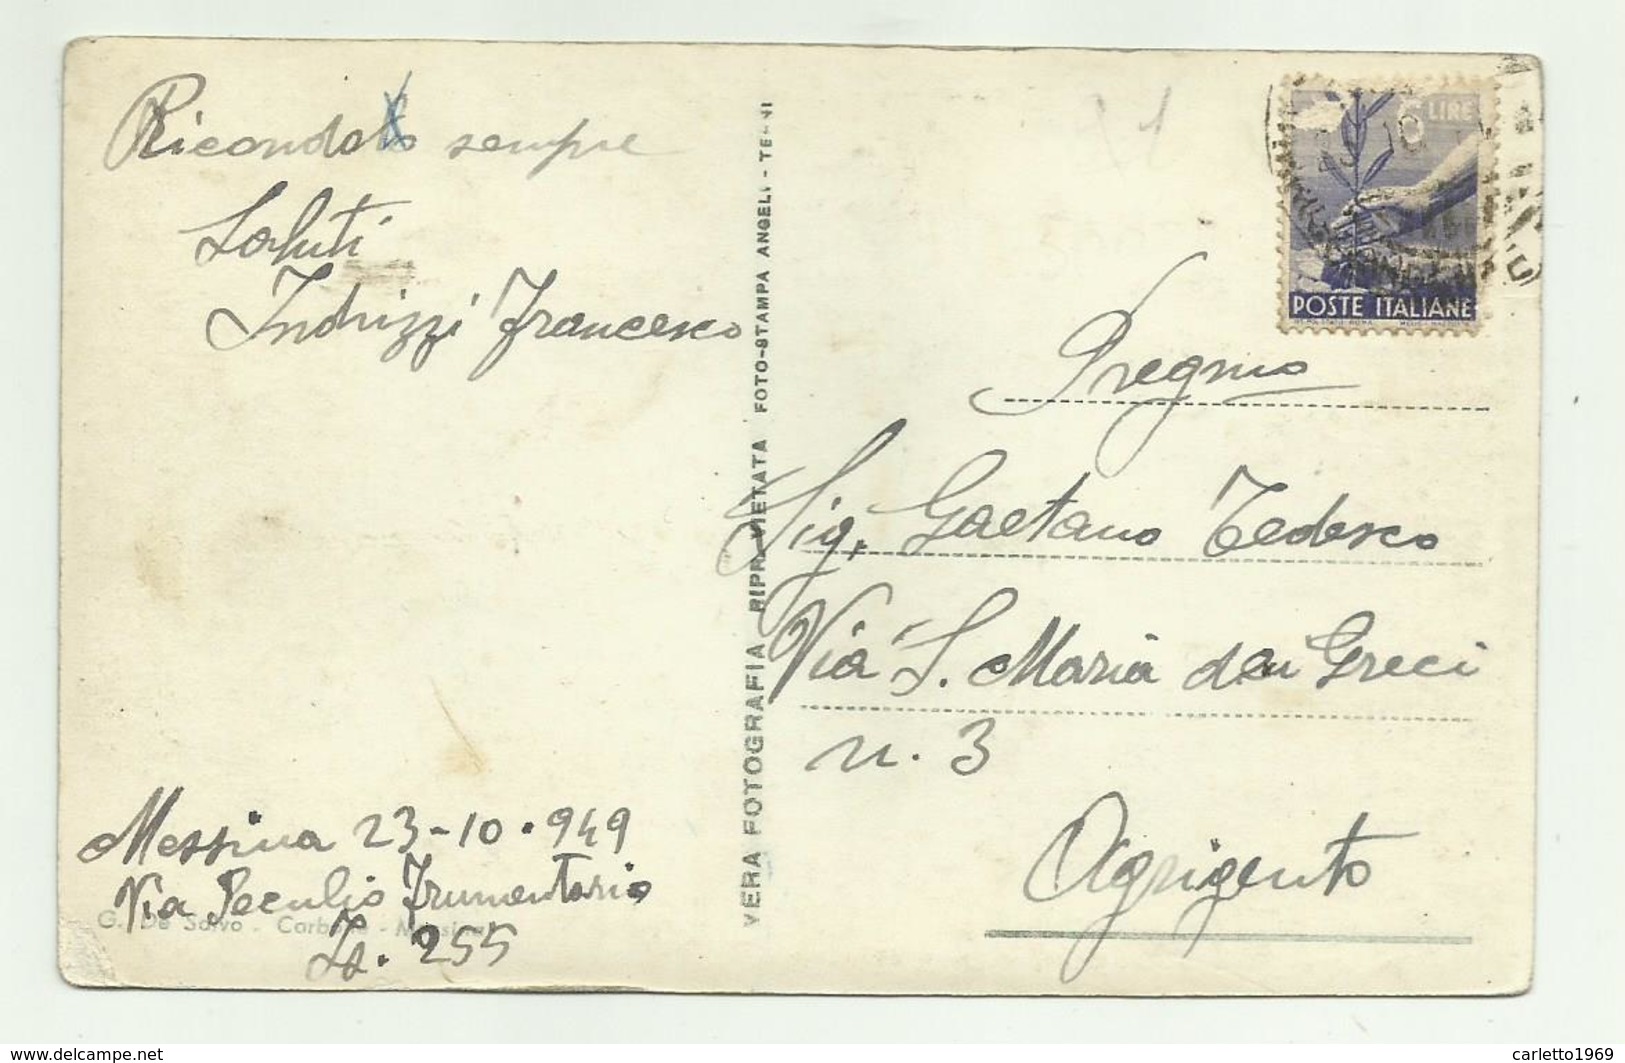 Ricordalo sempre
Saluti
Indrizzi Francesco
Messina 23-10-949
Via Peculio Frumentario
Is. 255
G. De Salvo - Carbone - Messina
VERA FOTOGRAFIA RIPR. VIETATA FOTO-STAMPA ANGELI - TERNI
6 LIRE
POSTE ITALIANE
Pregmo
Sig. Gaetano Tedesco
Via S. Maria dei Greci
n. 3
Agrigento
www.delcampe.net
carletto1969